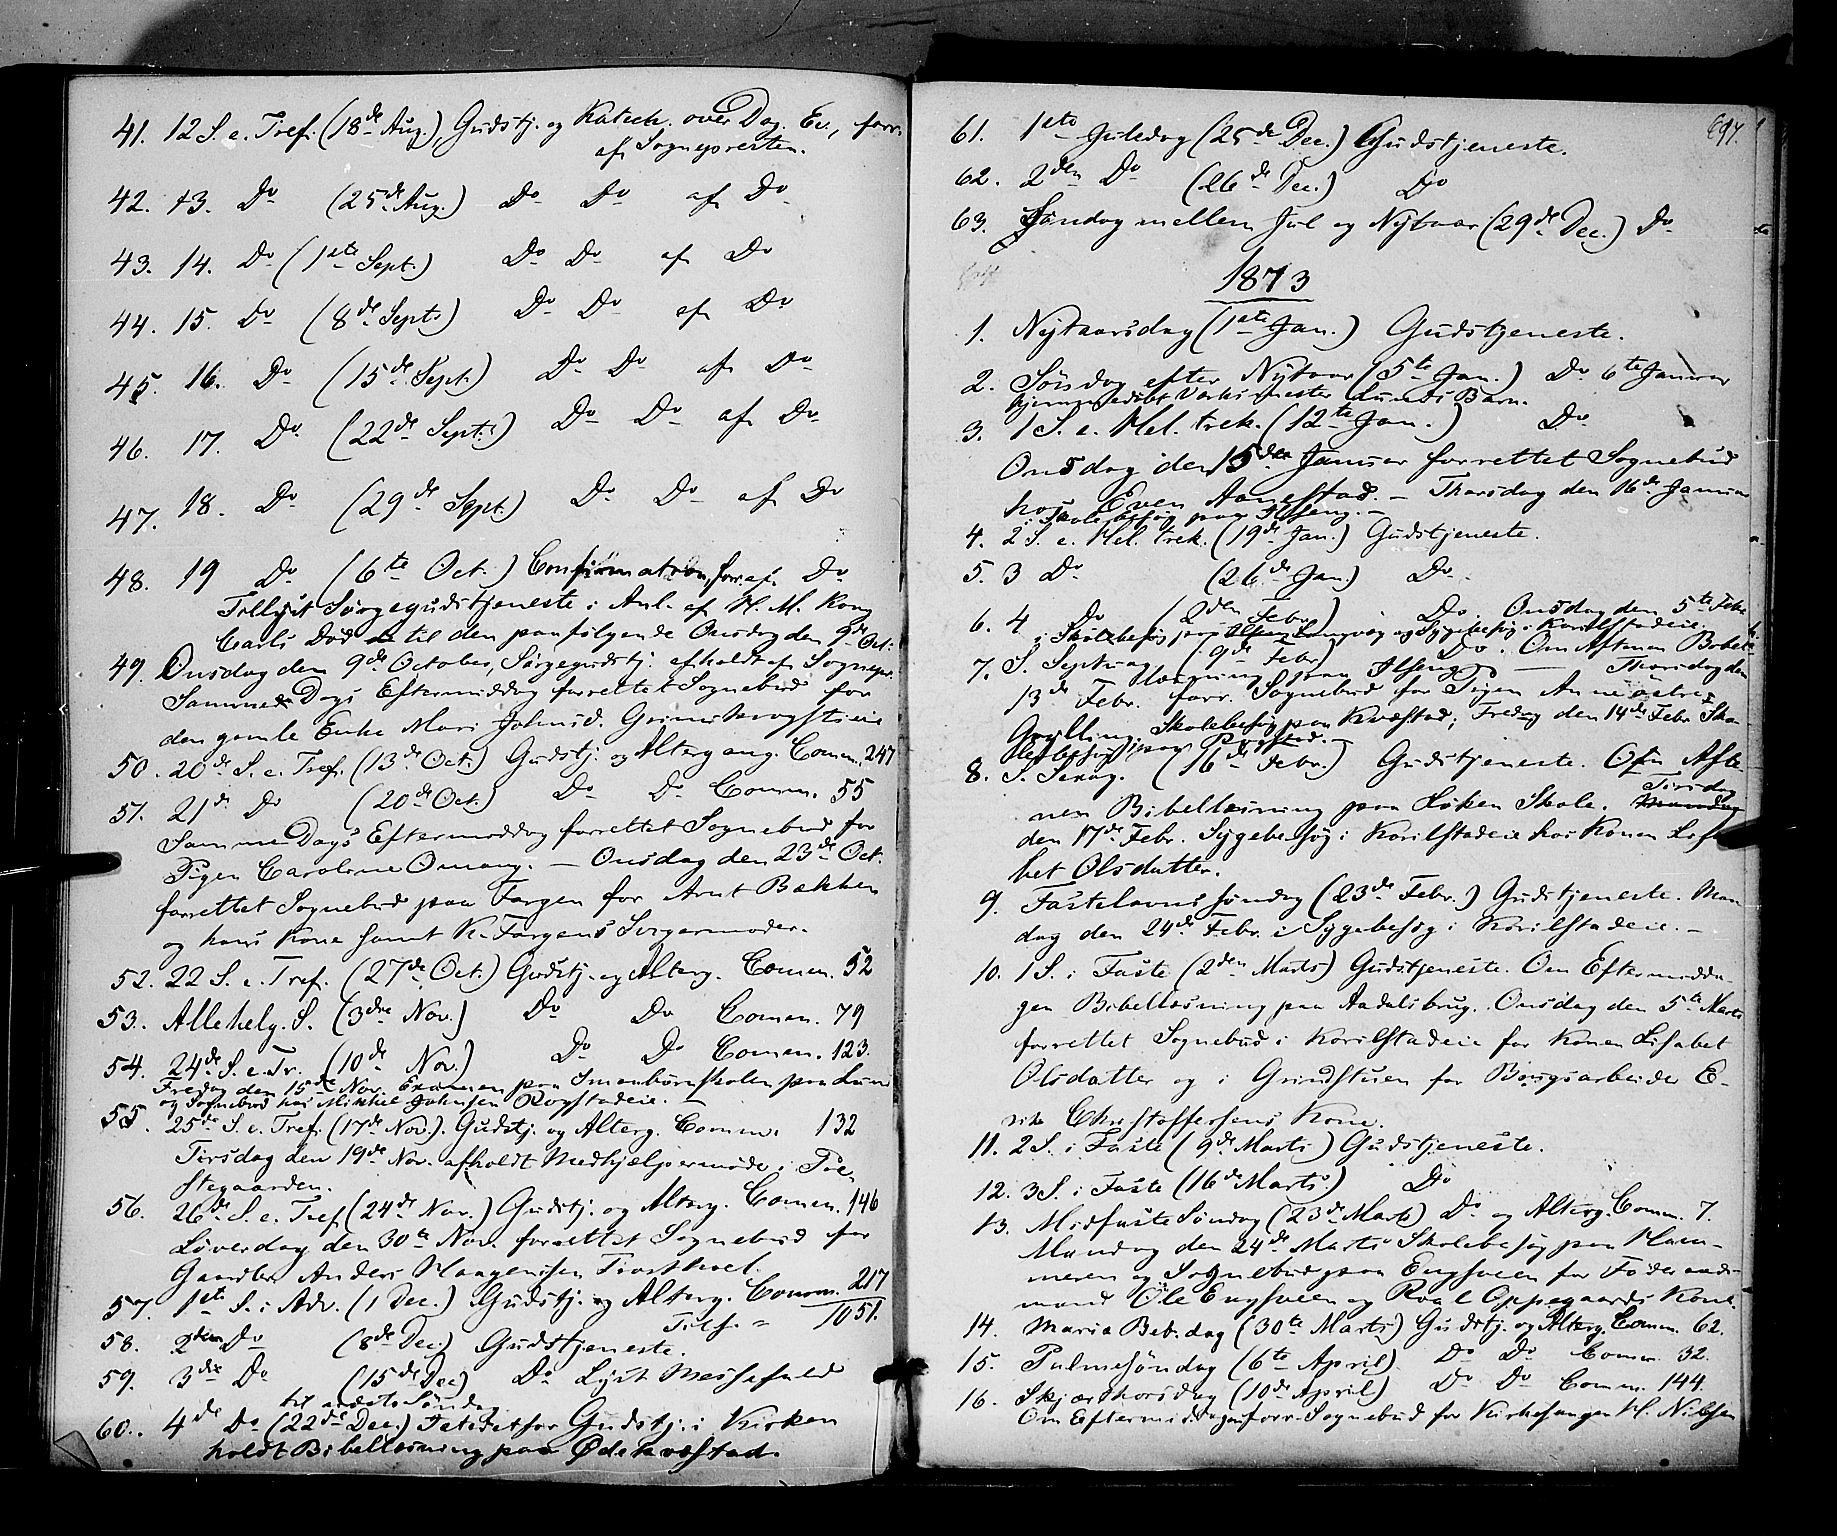 41. 12 S. e. Tref. (18de Aug.), Gudstj. og Katech. over Dag. Ev., forr.
af Sognepresten.
42. 13. Do (25de Aug.) Do Do af Do
43. 14. Do (1ste Sept.) Do Do af Do
44. 15. Do (8de Sept.) Do Do af Do
45. 16. Do (15de Sept.) Do Do af Do
46. 17. Do (22de Sept.) Do Do af Do
47. 18. Do (29de Sept.) Do Do af Do
48. 19 Do (6te Oct.) Confirmation, forr. af Do
Tillyst Sørgegudstjeneste i Anl. af H. M. Kong
Carls Død til den paafølgende Onsdag den 9de Oct.
49. Onsdag den 9de October, Sørgegudstj. afholdt af Sognepr.
Samme Dags Eftermiddag forrettet Sognebud for
den gamle Enke Mari Johnsd.
50. 20de S. e. Tref. (13de Oct.) Gudstj. og Altergang. Comm. 247
51. 21de Do (20de Oct.) Do Do Comm. 55
Samme Dags Eftermiddag forrettet Sognebud for
Pigen Caroline Omang. — Onsdag den 23de Oct.
forrettet Sognebud paa Fargen for Arnt Bakken
og hans Kone samt K. Fargens Svigermoder.
52. 22 S. e. Tref. (27de Oct.) Gudstj. og Alterg. Comm. 52
53. Allehelg. S. (3die Nov.) Do Do Comm. 79
54. 24de S. e. Tr. (10de Nov.) Do Do Comm. 123.
Fredag den 15de Nov. Examen paa Smaabørnskolen paa Lund
og Sognebud hos Mikkel Johnsen Rogstadeie. —
55. 25de S. e. Tref. (17de Nov.). Gudstj. og Alterg. Comm. 132
Tirsdag den 19de Nov. afholdt Medhjælpermøde i Præ-
stegaarden.
56. 26de S. e. Tref. (24de Nov.) Gudstj. og Alterg. Comm. 146
Løverdag den 30te Nov. forrettet Sognebud for
Anders Haagensen
57. 1ste S. i Adv. (1 Dec.) Gudstj. og Alterg. Comm. 217
Tils. 1051.
58. 2den Do (8de Dec.) Gudstjeneste.
59. 3die Do (15de Dec.) Do Lyst Messefald
til andet Søndag
60. 4de Do (22de Dec.) Istedetfor Gudstj. i Kirken
holdt Bibellæsning paa Ødekvæstad.
694.
61. 1ste Juledag (25de Dec.) Gudstjeneste.
62. 2den Do (26de Dec.) Do
63. Søndag mellem Jul og Nytaar (29de Dec.) Do
1873
1. Nytaarsdag (1ste Jan.) Gudstjeneste.
2. Søndag efter Nytaar (5te Jan.) Do 6te Januar
hjemmedøbt Værksmester Lunds Barn.
3. 1 S. e. Hel. trek. (12te Jan.) Do
Onsdag den 15de Januar forrettet Sognebud
hos Even Aanestad. — Thorsdag den 16de Januar
Skolebesøg paa Ilseng. —
4. 2 S. e. Hel. trek. (19de Jan.) Gudstjeneste.
5. 3 Do (26de Jan.) Do
6. 4 Do (2den Febr) Do. Onsdag den 5te Febr
i Skolebesøg paa og Sygebesøg i Korilstadeie.
7. S. Septuag. (9de Febr) Do. Om Aftenen Bibel-
læsning paa Ilseng — Thorsdag den
13de Febr. forr. Sognebud for Pigen Anne
Grylling. Skolebesøg paa Kvæstad; Fredag den 14de Febr. Sko-
lebesøg paa Rogstad. —
8. S. Sexag. (16de Febr.) Gudstjeneste. Om Afte-
Tirsdag
nen Bibellæsning paa Høken Skole. Mandag
den 17de Febr. Sygebesøg i Korilstadeie hos Konen Lisa-
bet Olsdatter.
9. Fastelavnssøndag (23de Febr.) Gudstjeneste. Man
dag den 24de Febr. i Sygebesøg i Korilstadeie. —
10. 1 S. i Faste (2den Marts) Gudstjeneste. Om Eftermidda-
gen Bibellæsning paa Aadalsbrug. Onsdag den 5te Marts
forrettet Sognebud i Korilstadeie for Konen Lisabet
Olsdatter og i Grindstuen for Brugsarbeider E-
rik Christoffersens Kone.
11. 2 S. i Faste (9de Marts) Gudstjeneste.
12. 3 S. i Faste (16de Marts) Do
13. Midfaste Søndag (23de Marts) Do og Alterg. Comm. 7.
Mandag den 24de Marts Skolebesøg paa Ham-
meren og Sognebud paa Engsveen for Føderaads-
mand Ole Engsveen og Roal Oppegaards Kone.
14. Mariæ Beb. dag (30te Marts) Gudstj. og Alterg. Comm. 62.
15. Palmesøndag (6te April) Do Do Comm. 32.
16. Skjærthorsdag (10de April) Do Do Comm. 144.
Om Eftermiddagen forr. Sognebud for Kirkesanger H. Nilsen